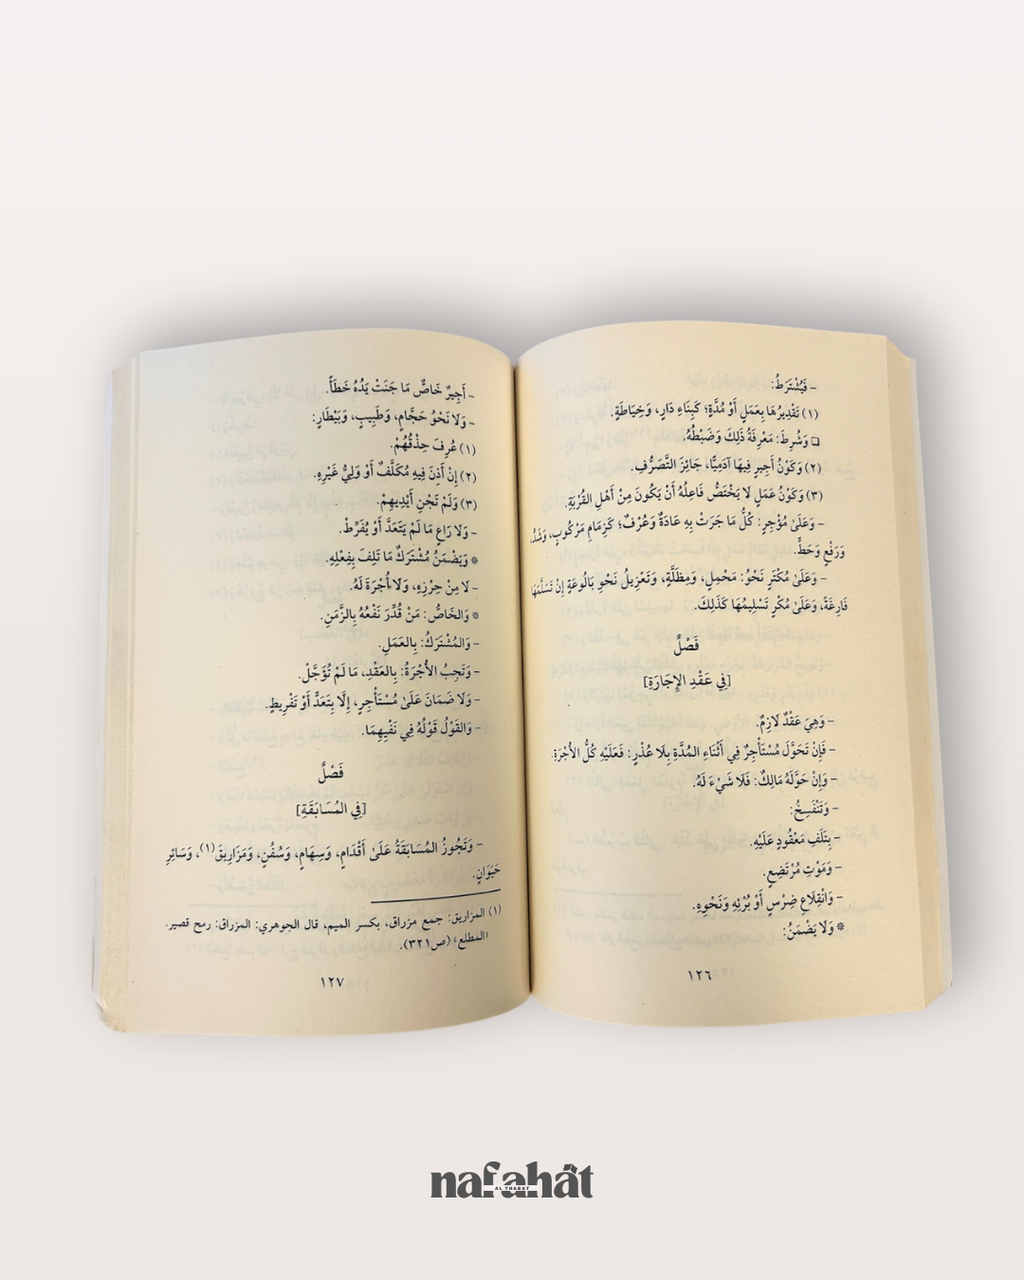 - فَيُشْتَرَطُ:
(١) تَقْدِيرُهَا بِعَمَلٍ أَوْ مُدَّةٍ؛ كَبِنَاءِ دَارٍ، وَخِيَاطَةٍ.
❑ وَشُرِطَ: مَعْرِفَةُ ذَلِكَ وَضَبْطُهُ.
(٢) وَكَوْنُ أَجِيرٍ فِيهَا آدَمِيًّا، جَائِزَ التَّصَرُّفِ.
(٣) وَكَوْنُ عَمَلٍ لَا يَخْتَصُّ فَاعِلُهُ أَنْ يَكُونَ مِنْ أَهْلِ القُرْبَةِ.
- وَعَلَىٰ مُؤْجِرٍ: كُلُّ مَا جَرَتْ بِهِ عَادَةٌ وَعُرْفٌ؛ كَزِمَامِ مَرْكُوبٍ، وَشَدٍّ،
وَرَفْعٍ وَحَطٍّ.
- وَعَلَىٰ مُكْتَرٍ نَحْوُ: مَحْمِلٍ، وَمِظَلَّةٍ، وَتَعْزِيلُ نَحْوِ بَالُوعَةٍ إِنْ تَسَلَّمَهَا
فَارِغَةً، وَعَلَىٰ مُكْرٍ تَسْلِيمُهَا كَذَلِكَ.
فَصْلٌ
[فِي عَقْدِ الإِجَارَةِ]
- وَهِيَ عَقْدٌ لَازِمٌ.
- فَإِنْ تَحَوَّلَ مُسْتَأْجِرٌ فِي أَثْنَاءِ المُدَّةِ بِلَا عُذْرٍ: فَعَلَيْهِ كُلُّ الأُجْرَةِ.
- وَإِنْ حَوَّلَهُ مَالِكٌ: فَلَا شَيْءَ لَهُ.
- وَتَنْفَسِخُ:
- بِتَلَفِ مَعْقُودٍ عَلَيْهِ.
- وَمَوْتِ مُرْتَضِعٍ.
- وَانْقِلَاعِ ضِرْسٍ أَوْ بُرْئِهِ وَنَحْوِهِ.
* وَلَا يَضْمَنُ:
١٢٦
- أَجِيرٌ خَاصٌّ مَا جَنَتْ يَدُهُ خَطَأً.
- وَلَا نَحْوُ حَجَّامٍ، وَطَبِيبٍ، وَبَيْطَارٍ:
(١) عُرِفَ حِذْقُهُمْ.
(٢) إِنْ أَذِنَ فِيهِ مُكَلَّفٌ أَوْ وَلِيُّ غَيْرِهِ.
(٣) وَلَمْ تَجْنِ أَيْدِيهِمْ.
- وَلَا رَاعٍ مَا لَمْ يَتَعَدَّ أَوْ يُفَرِّطْ.
* وَيَضْمَنُ مُشْتَرَكٌ مَا تَلِفَ بِفِعْلِهِ.
- لَا مِنْ حِرْزِهِ، وَلَا أُجْرَةَ لَهُ.
* وَالخَاصُّ: مَنْ قُدِّرَ نَفْعُهُ بِالزَّمَنِ.
- وَالمُشْتَرَكُ: بِالعَمَلِ.
- وَتَجِبُ الأُجْرَةُ: بِالعَقْدِ، مَا لَمْ تُؤَجَّلْ.
- وَلَا ضَمَانَ عَلَىٰ مُسْتَأْجِرٍ، إِلَّا بِتَعَدٍّ أَوْ تَفْرِيطٍ.
- وَالقَوْلُ قَوْلُهُ فِي نَفْيِهِمَا.
فَصْلٌ
[فِي المُسَابَقَةِ]
- وَتَجُوزُ المُسَابَقَةُ عَلَىٰ أَقْدَامٍ، وَسِهَامٍ، وَسُفُنٍ، وَمَزَارِيقَ(١)، وَسَائِرِ
حَيَوَانٍ.
(١) المزاريق: جمع مزراق، بكسر الميم، قال الجوهري: المزراق: رمح قصير.
«المطلع» (ص٣٢١).
١٢٧
nafahāt
AL THABAT